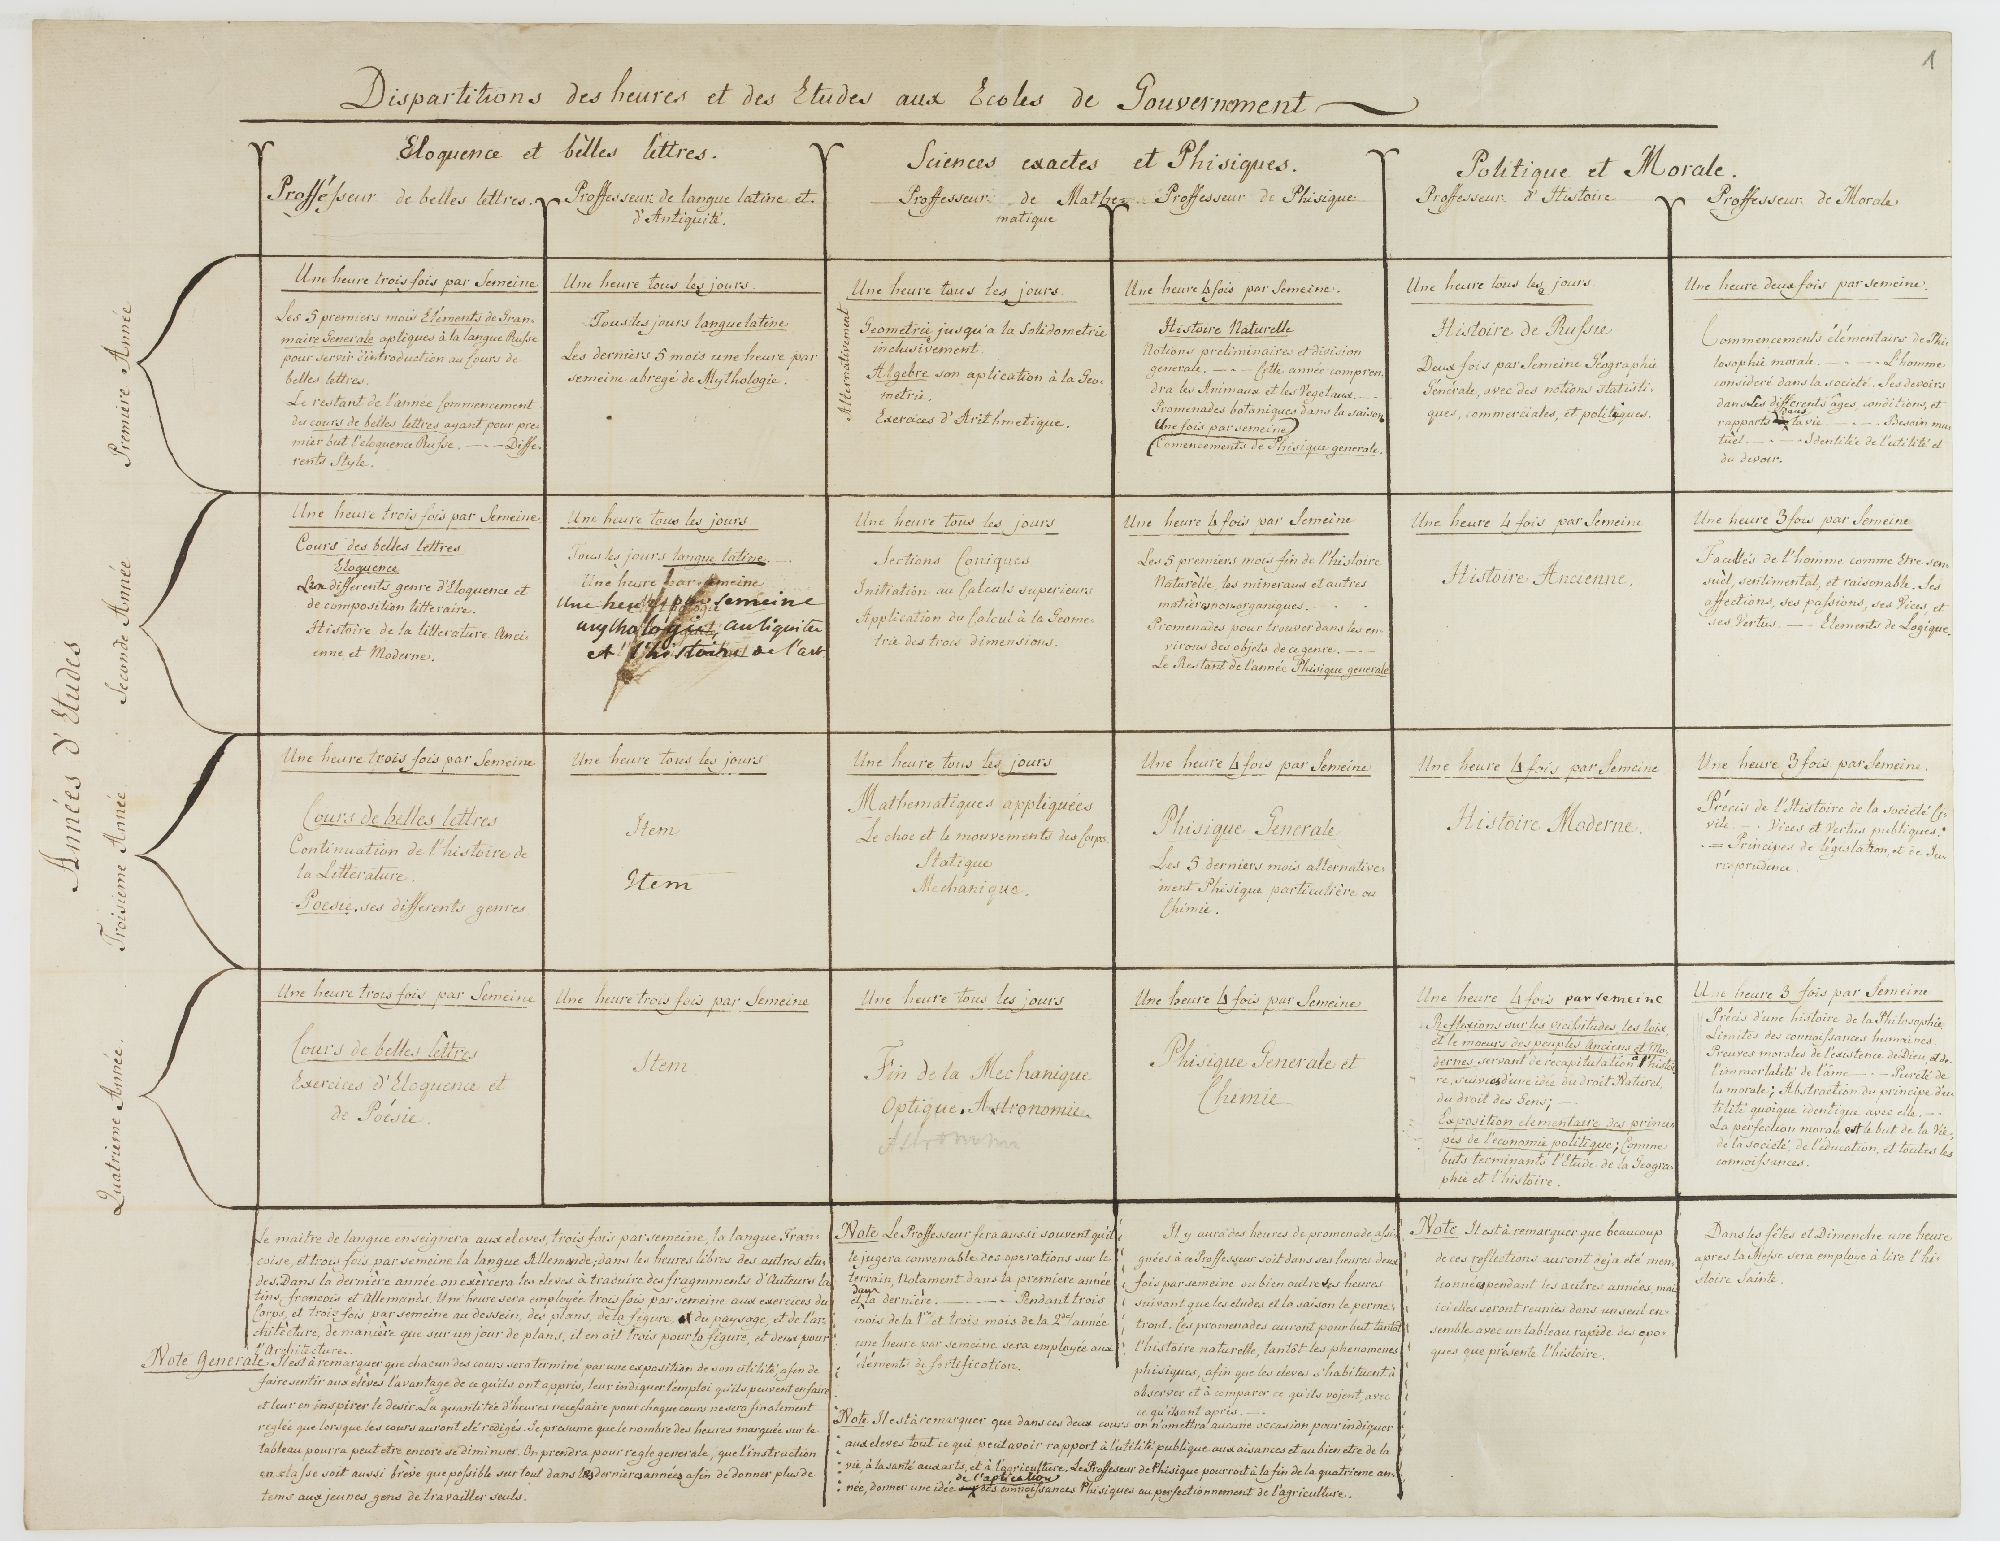 1
Dispartitions des heures et des Etudes aux Ecoles de Gouvernement
Eloquence et bélles léttres.
Sciences exactes et Phisiques.
Politique et Morale.
Proffésseur de belles lettres.
Proffesseur de langue latine et
d'Antiquité.
Proffesseur de Mathe
matique
Proffesseur de Phisique
Proffesseur d'Histoire
Proffesseur de Morale
Années d'Etudes
Premiere Année
Une heure trois fois par Semeine
Les 5 premiers mois Elements de Gram-
maire Generale apliqués à la langue Russe
pour servir d'introduction au Cours de
belles lettres.
Le restant de l'année Commencement
du cours de bélles lettres ayant pour pre-
mier but l'eloquence Russe. - - - Diffe-
rents Style.
Une heure tous les jours.
Tous les jours langue latine
Les derniers 5 mois une heure par
semeine abregé de Mythologie.
Une heure tous les jours
Alternativement
Geometrie jusqu'a la Solidometrie
inclusivement.
Algebre son aplication à la Geo-
metrie.
Exercices d'Arithmetique.
Une heure 4 fois par Semeine.
Histoire Naturelle
Notions preliminaires et division
generale. - - - Cette année compren-
dra les Animaux et les Vegetaux. - -
Promenades botaniques dans la saison
Une fois par semeine
Comencements de Phisique generale.
Une heure tous les jours.
Histoire de Russie
Deux fois par Semeine Géographie
Générale, avec des notions statisti-
ques, commerciales, et politiques.
Une heure deux fois par semeine.
Commencements élémentaires de Phi-
losophie morale. - - - - L'homme
consideré dans la société. Ses devoirs
dans les differents âges, conditions, et
rapports dans la vie - - - - Besoin mu-
tüel - - - - Identitée de l'utilité et
du devoir.
Seconde Année
Une heure trois fois par Semeine
Cours des belles lettres
Eloquence
differents genre d'Eloquence et
de composition litteraire.
Histoire de la litterature Anci-
enne et Moderne.
Une heure tous les jours
Tous les jours langue latine
Une heure par semeine
Une heure par semeine
mythologie, antiquité
et l'histoire de l'art
Une heure tous les jours
Sections Coniques
Initiation au Calculs superieurs
Application du Calcul à la Geome-
trie des trois dimensions.
Une heure 4 fois par Semeine
Les 5 premiers mois fin de l'histoire
Naturèlle, les mineraux et autres
matières non organiques.
Promenades pour trouver dans les en-
virons des objets de ce genre. - - -
Le Restant de l'année Phisique generale
Une heure 4 fois par Semeine
Histoire Ancienne.
Une heure 3 fois par Semeine
Facultés de l'homme comme Etre sen-
suèl, sentimental, et raisonable. Ses
affections, ses passions, ses Vices, et
ses Vertus. - - Elements de Logique.
Troisieme Année
Une heure trois fois par Semeine
Cours de belles lettres
Continuation de l'histoire de
la Litterature.
Poesie, ses differents genres
Une heure tous les jours
Item
Item
Une heure tous les jours
Mathematiques appliquées
Le choc et le mouvements des Corps.
Statique
Mechanique.
Une heure 4 fois par Semeine
Phisique Generale
Les 5 derniers mois alternative-
ment Phisique particulière ou
Chimie.
Une heure 4 fois par Semeine
Histoire Moderne.
Une heure 3 fois par Semeine.
Précis de l'Histoire de la société Ci-
vile - - Vices et Vertus publiques.
Principes de législation, et de Ju-
risprudence.
Quatrieme Année.
Une heure trois fois par Semeine
Cours de belles lèttres
Exercices d'Eloquence et
de Poésie.
Une heure trois fois par Semeine
Item
Une heure tous les jours
Fin de la Mechanique
Optique. Astronomie.
Astronomie
Une heure 4 fois par Semeine
Phisique Generale et
Chemie
Une heure 4 fois par semeine
Reflexions sur les vicissitudes, les loix
et le moeurs des peuples Anciens et Mo-
dernes servant de récapitulation à l'histoi-
re, suivies d'une idée du droit Naturel,
du droit des Gens; -
Exposition elementaire des princi-
pes de l'économie politique; Comme
buts terminants l'Etude de la Geogra-
phie et l'histoire.
Une heure 3 fois par Semeine
Précis d'une histoire de la Philosophie
Limites des connaissances humaines
Preuves morales de l'existence de Dieu, et de
l'immortalité de l'âme - - - Pureté de
la morale; Abstraction du principe d'u-
tilité quoique identique avec elle. - -
La perfection morale est le but de la Vie,
de la société, de l'éducation, et toutes les
connoissances.
Le maitre de langue enseignera aux eleves, trois fois par semeine, la langue Fran-
coise, et trois fois par semeine la langue Allemande; dans les heures libres des autres étu-
des. Dans la dernière année on exèrcera les eleves à traduire des fragments d'Auteurs la-
tins, francois et allemands. Une heure sera employée trois fois par semeine aux exercices du
Corps, et trois fois par semeine au dessein, des plans, de la figure, et du paysage, et de l'ar-
chitècture, de manière que sur un jour de plans, il en ait trois pour la figure, et deux pour
l'Architecture.
Note Generale. Il est à remarquer que chacun des cours sera terminé par une exposition de son utilité afin de
faire sentir aux elèves l'avantage de ce qu'ils ont appris, leur indiquer l'emploi qu'ils peuvent en faire
et leur en inspirer le desir. La quantitée d'heures necessaire pour chaque cours ne sera finalement
reglée que lorsque les cours auront eté rédigés. Je presume que le nombre des heures marquée sur le
tableau pourra peut etre encore se diminuer. On prendra pour regle generale, que l'instruction
en classe soit aussi brève que possible sur tout dans les dernieres années afin de donner plus de
tems aux jeunes gens de travailler seuls.
Note Le Professeur fera aussi souvent qu'il
le jugera convenable des operations sur le
terrain, Notament dans la première année
et dans la dernière. - - - - Pendant trois
mois de la 1re et trois mois de la 2de année
une heure par semeine sera employée aux
élements de fortification.
Il y aura des heures de promenade assi-
gnées à ce Professeur soit dans ses heures deux
fois par semeine ou bien outre ses heures
suivant que les etudes et la saison le perme-
tront. Ces promenades auront pour but tantôt
l'histoire naturelle, tantôt les phenomenes
phisiques, afin que les eleves s'habituent à
observer et à comparer ce qu'ils voient, avec
ce qu'ils ont apris. - -
Note. Il est à remarquer que dans ces deux cours on n'omettra aucune occasion pour indiquer
aux eleves tout ce qui peut avoir rapport à l'utilité publique aux aisances et au bien etre de la
vie, à la santé aux arts, et à l'agriculture. Le Professeur de Phisique pourroit à la fin de la quatrieme an-
née, donner une idée de l'aplication des connoissances Phisiques au perfectionnement de l'agriculture.
Note Il est à remarquer que beaucoup
de ces reflections auront déja eté men-
tionnées pendant les autres années, mais
ici elles seront reunies dans un seul en-
semble avec un tableau rapide des epo-
ques que présente l'histoire.
Dans les fêtes et Dimenche une heure
apres la Messe sera employe à lire l'hi-
stoire Sainte.